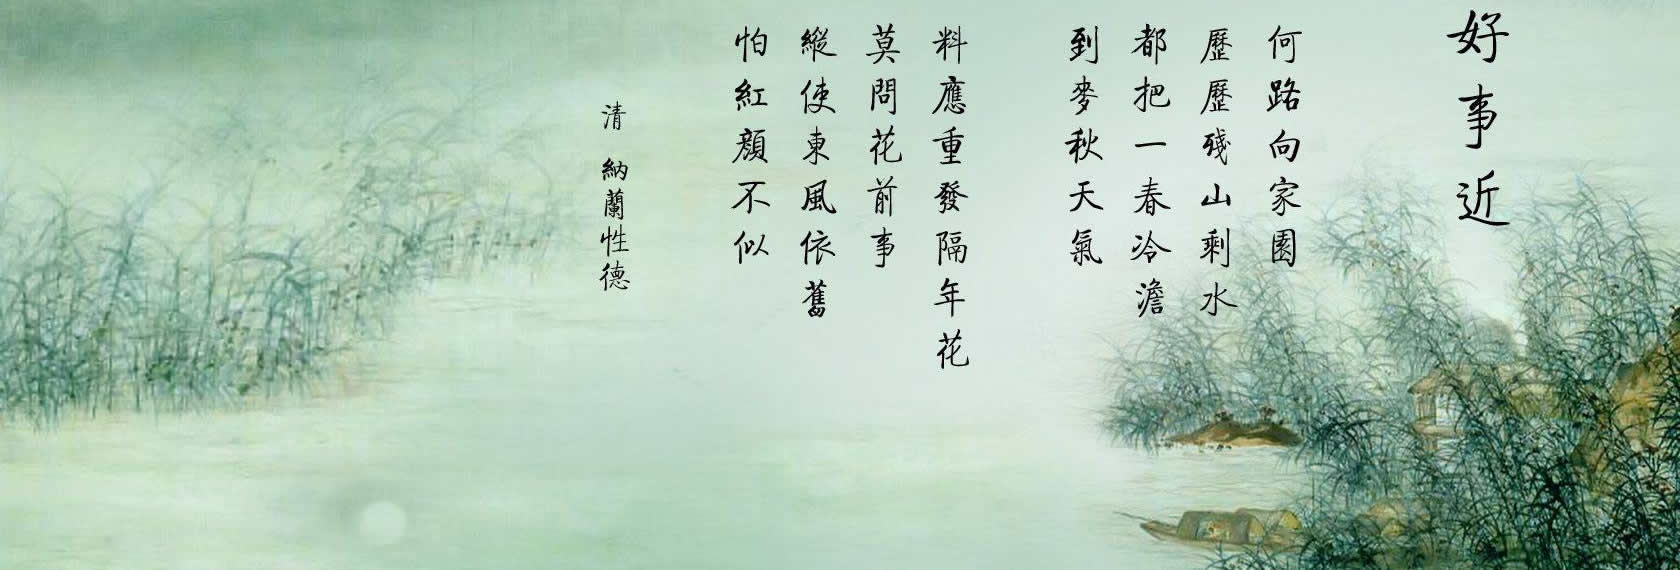 好事近
何路向家園
歷歷殘山剩水
都把一春冷澹
到麥秋天氣
料應重發隔年花
莫問花前事
縱使東風依舊
怕紅顏不似
清 納蘭性德